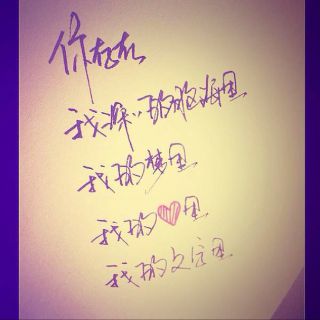 你在
我深深的脑海里
我的梦里
我的❤里
我的文字里